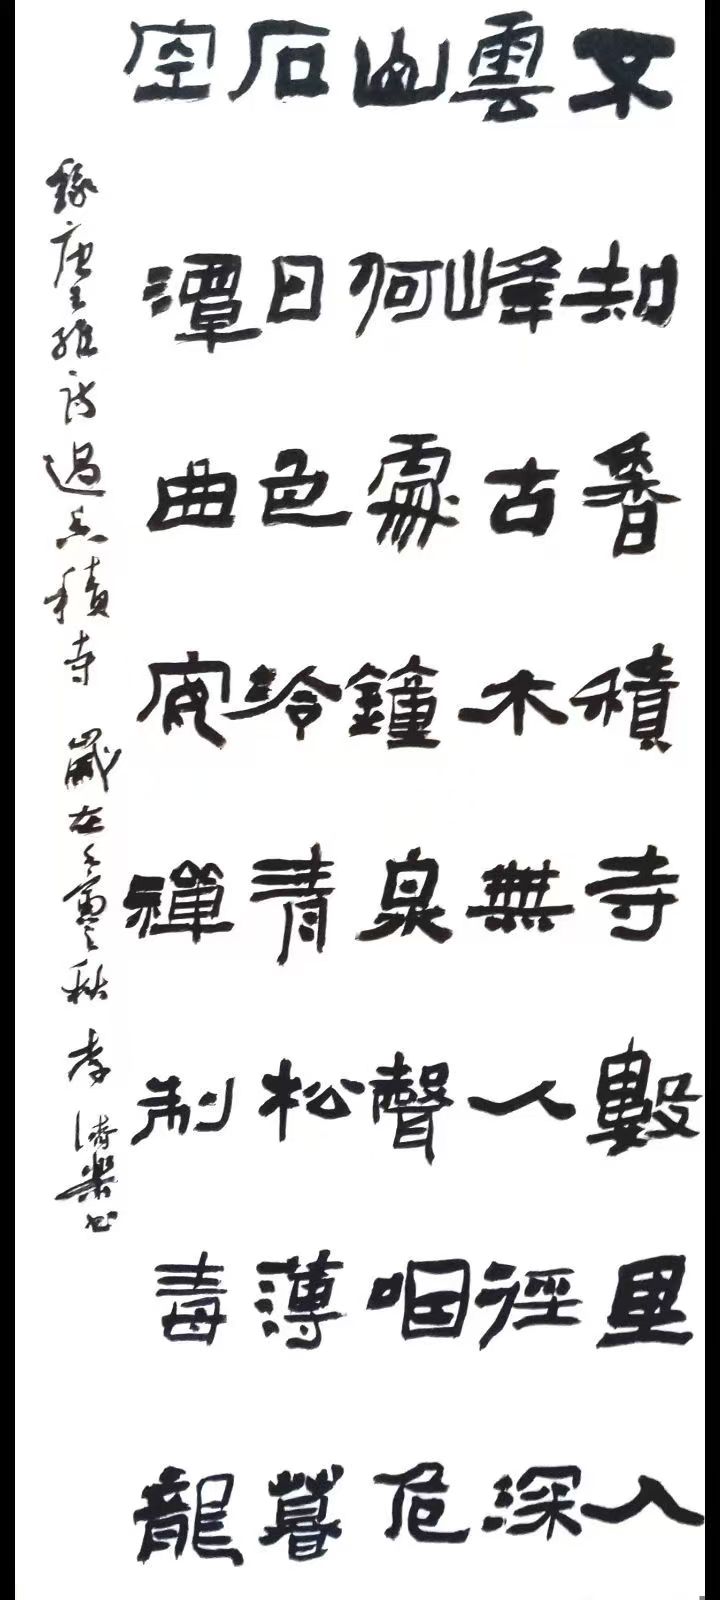 不知香積寺數里入
雲峰古木無人徑深
山何處鐘泉聲咽危
石日色泠青松薄暮
空潭曲安禪制毒龍
錄唐王維詩過香積寺 歲在壬寅之秋 李